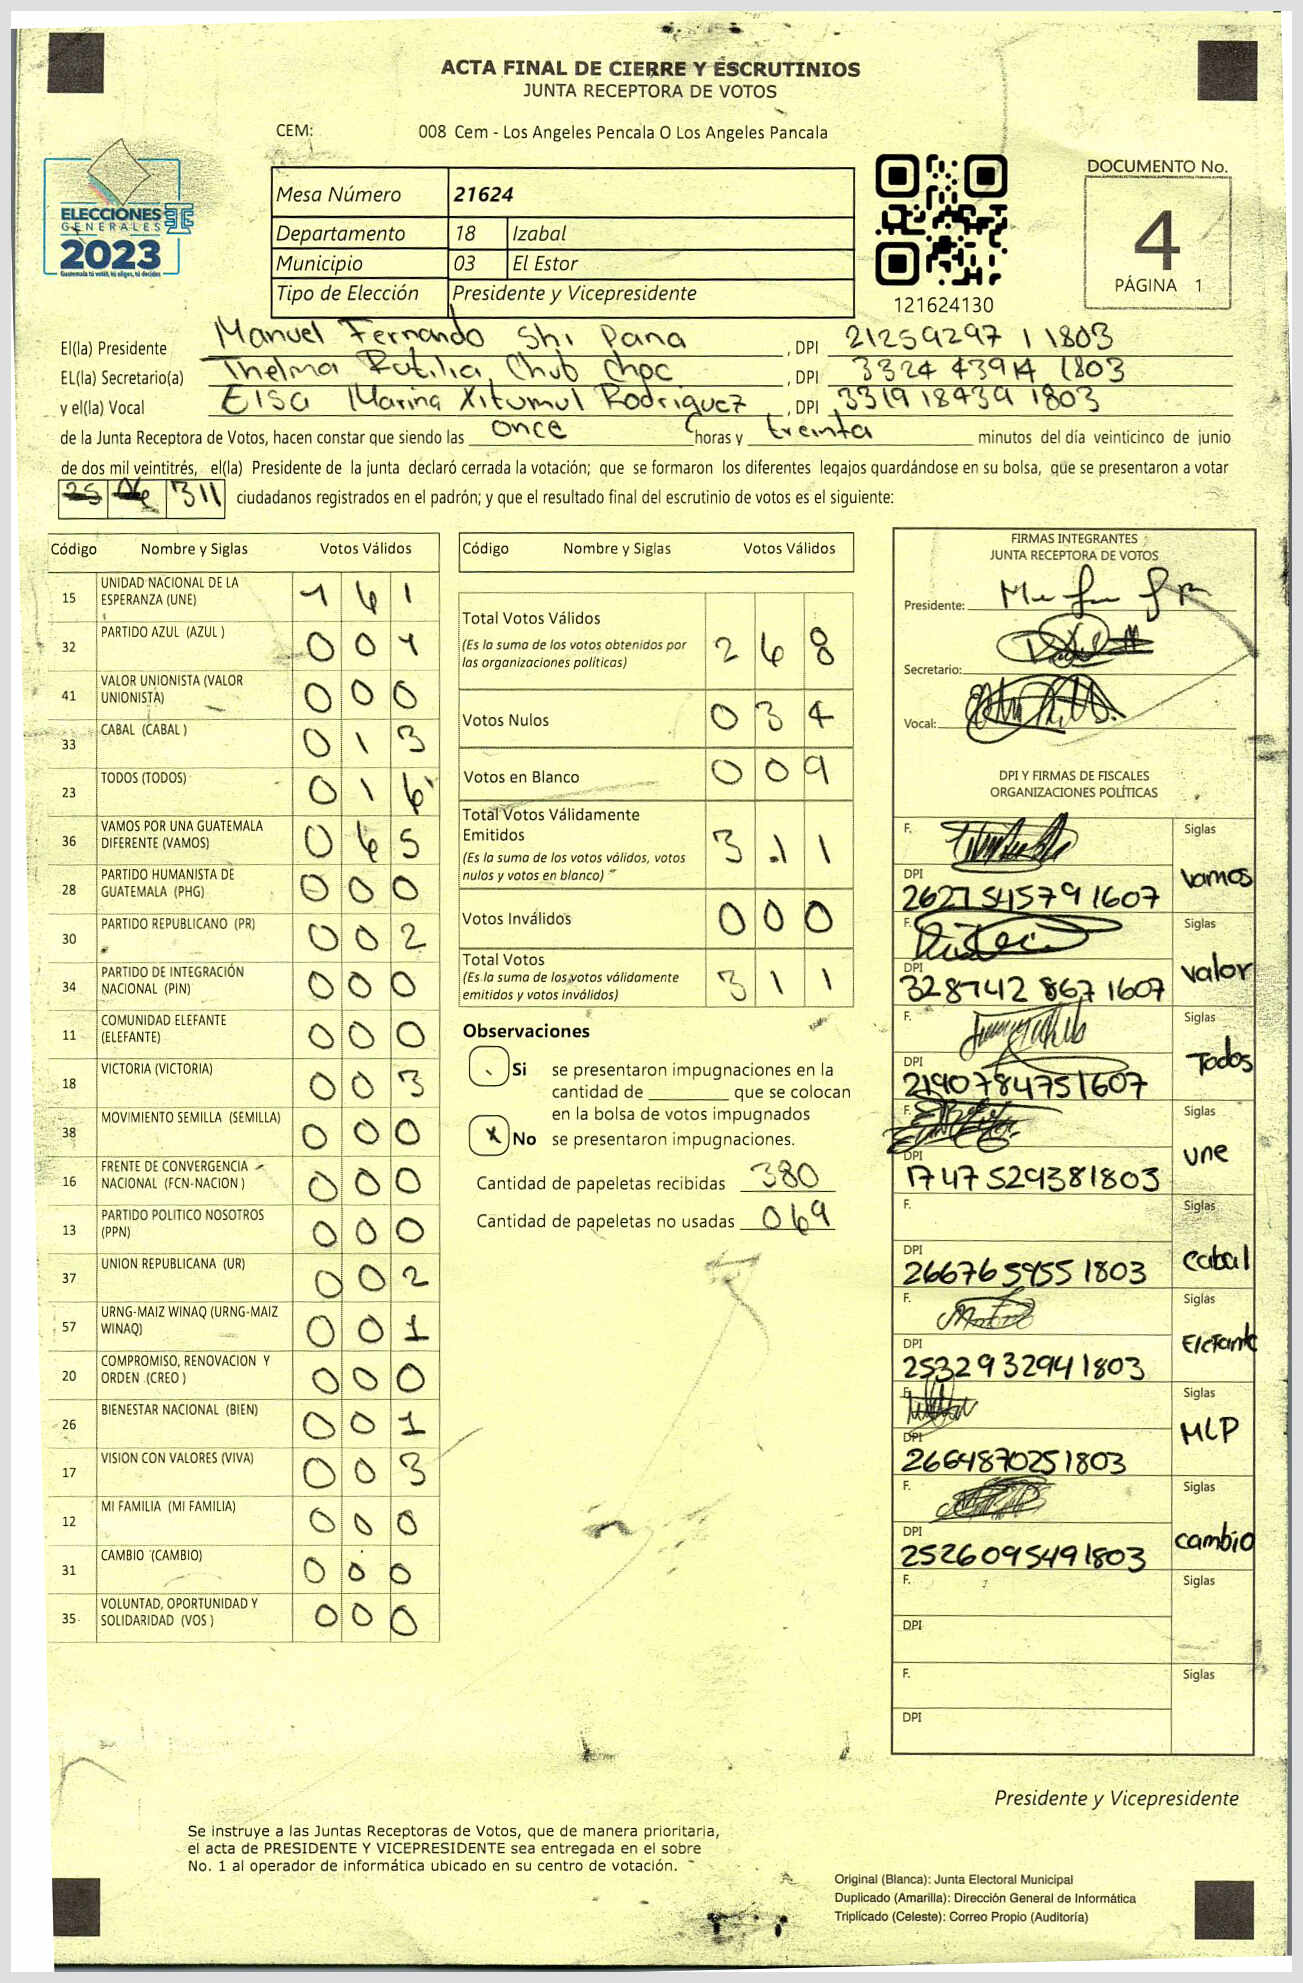 ACTA FINAL DE CIERRE Y ESCRUTINIOS
JUNTA RECEPTORA DE VOTOS
CEM: 008 Cem - Los Angeles Pencala O Los Angeles Pancala
ELECCIONES
GENERALES
2023
Guatemala tú votás, tú eliges, tú decides
Mesa Número 21624
Departamento 18 Izabal
Municipio 03 El Estor
Tipo de Elección Presidente y Vicepresidente
121624130
DOCUMENTO No.
4
PÁGINA 1
El(la) Presidente Manuel Fernando Shi Pana, DPI 21259297 1 1803
EL(la) Secretario(a) Thelma Rutilia Chub Choc, DPI 3324 43914 1803
y el(la) Vocal Elsa Marina Xitumul Rodriguez, DPI 331918439 1803
de la Junta Receptora de Votos, hacen constar que siendo las once horas y treinta minutos del día veinticinco de junio
de dos mil veintitrés, el(la) Presidente de la junta declaró cerrada la votación; que se formaron los diferentes legajos guardándose en su bolsa, que se presentaron a votar
25 06 311 ciudadanos registrados en el padrón; y que el resultado final del escrutinio de votos es el siguiente:
Código Nombre y Siglas Votos Válidos
15 UNIDAD NACIONAL DE LA ESPERANZA (UNE) 1 6 1
32 PARTIDO AZUL (AZUL ) 0 0 1
41 VALOR UNIONISTA (VALOR UNIONISTA) 0 0 0
33 CABAL (CABAL ) 0 1 3
23 TODOS (TODOS) 0 1 6
36 VAMOS POR UNA GUATEMALA DIFERENTE (VAMOS) 0 6 5
28 PARTIDO HUMANISTA DE GUATEMALA (PHG) 0 0 0
30 PARTIDO REPUBLICANO (PR) 0 0 2
34 PARTIDO DE INTEGRACIÓN NACIONAL (PIN) 0 0 0
11 COMUNIDAD ELEFANTE (ELEFANTE) 0 0 0
18 VICTORIA (VICTORIA) 0 0 3
38 MOVIMIENTO SEMILLA (SEMILLA) 0 0 0
16 FRENTE DE CONVERGENCIA NACIONAL (FCN-NACION ) 0 0 0
13 PARTIDO POLITICO NOSOTROS (PPN) 0 0 0
37 UNION REPUBLICANA (UR) 0 0 2
57 URNG-MAIZ WINAQ (URNG-MAIZ WINAQ) 0 0 1
20 COMPROMISO, RENOVACION Y ORDEN (CREO ) 0 0 0
26 BIENESTAR NACIONAL (BIEN) 0 0 1
17 VISION CON VALORES (VIVA) 0 0 3
12 MI FAMILIA (MI FAMILIA) 0 0 0
31 CAMBIO (CAMBIO) 0 0 0
35 VOLUNTAD, OPORTUNIDAD Y SOLIDARIDAD (VOS ) 0 0 0
Código Nombre y Siglas Votos Válidos
Total Votos Válidos 2 6 8
(Es la suma de los votos obtenidos por
las organizaciones políticas)
Votos Nulos 0 3 4
Votos en Blanco 0 0 9
Total Votos Válidamente
Emitidos 3 1 1
(Es la suma de los votos válidos, votos
nulos y votos en blanco)
Votos Inválidos 0 0 0
Total Votos 3 1 1
(Es la suma de los votos válidamente
emitidos y votos inválidos)
Observaciones
Si se presentaron impugnaciones en la
cantidad de ________ que se colocan
en la bolsa de votos impugnados
x No se presentaron impugnaciones.
Cantidad de papeletas recibidas 380
Cantidad de papeletas no usadas 069
FIRMAS INTEGRANTES
JUNTA RECEPTORA DE VOTOS
Presidente:
Secretario:
Vocal:
DPI Y FIRMAS DE FISCALES
ORGANIZACIONES POLÍTICAS
F. Siglas
DPI Vamos
2627 54579 1607
F. Siglas
DPI valor
328742 8671607
F. Siglas
DPI Todos
2190784751607
F. Siglas
DPI une
1747529381803
F. Siglas
DPI Cabal
2667659551803
F. Siglas
DPI Elefante
2532932941803
F. Siglas
DPI MLP
2664870251803
F. Siglas
DPI cambio
2526095491803
F. Siglas
DPI
F. Siglas
DPI
Presidente y Vicepresidente
Se instruye a las Juntas Receptoras de Votos, que de manera prioritaria,
el acta de PRESIDENTE Y VICEPRESIDENTE sea entregada en el sobre
No. 1 al operador de informática ubicado en su centro de votación.
Original (Blanca): Junta Electoral Municipal
Duplicado (Amarilla): Dirección General de Informática
Triplicado (Celeste): Correo Propio (Auditoría)